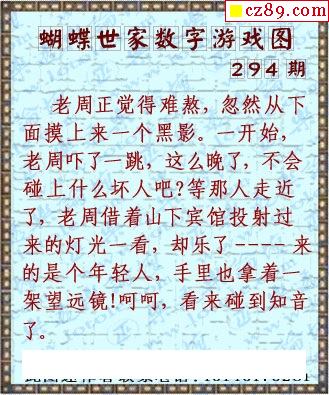 cz89.com
蝴蝶世家数字游戏图
294期
老周正觉得难熬，忽然从下
面摸上来一个黑影。一开始，
老周吓了一跳，这么晚了，不会
碰上什么坏人吧？等那人走近
了，老周借着山下宾馆投射过
来的灯光一看，却乐了----来
的是个年轻人，手里也拿着一
架望远镜！呵呵，看来碰到知音
了。